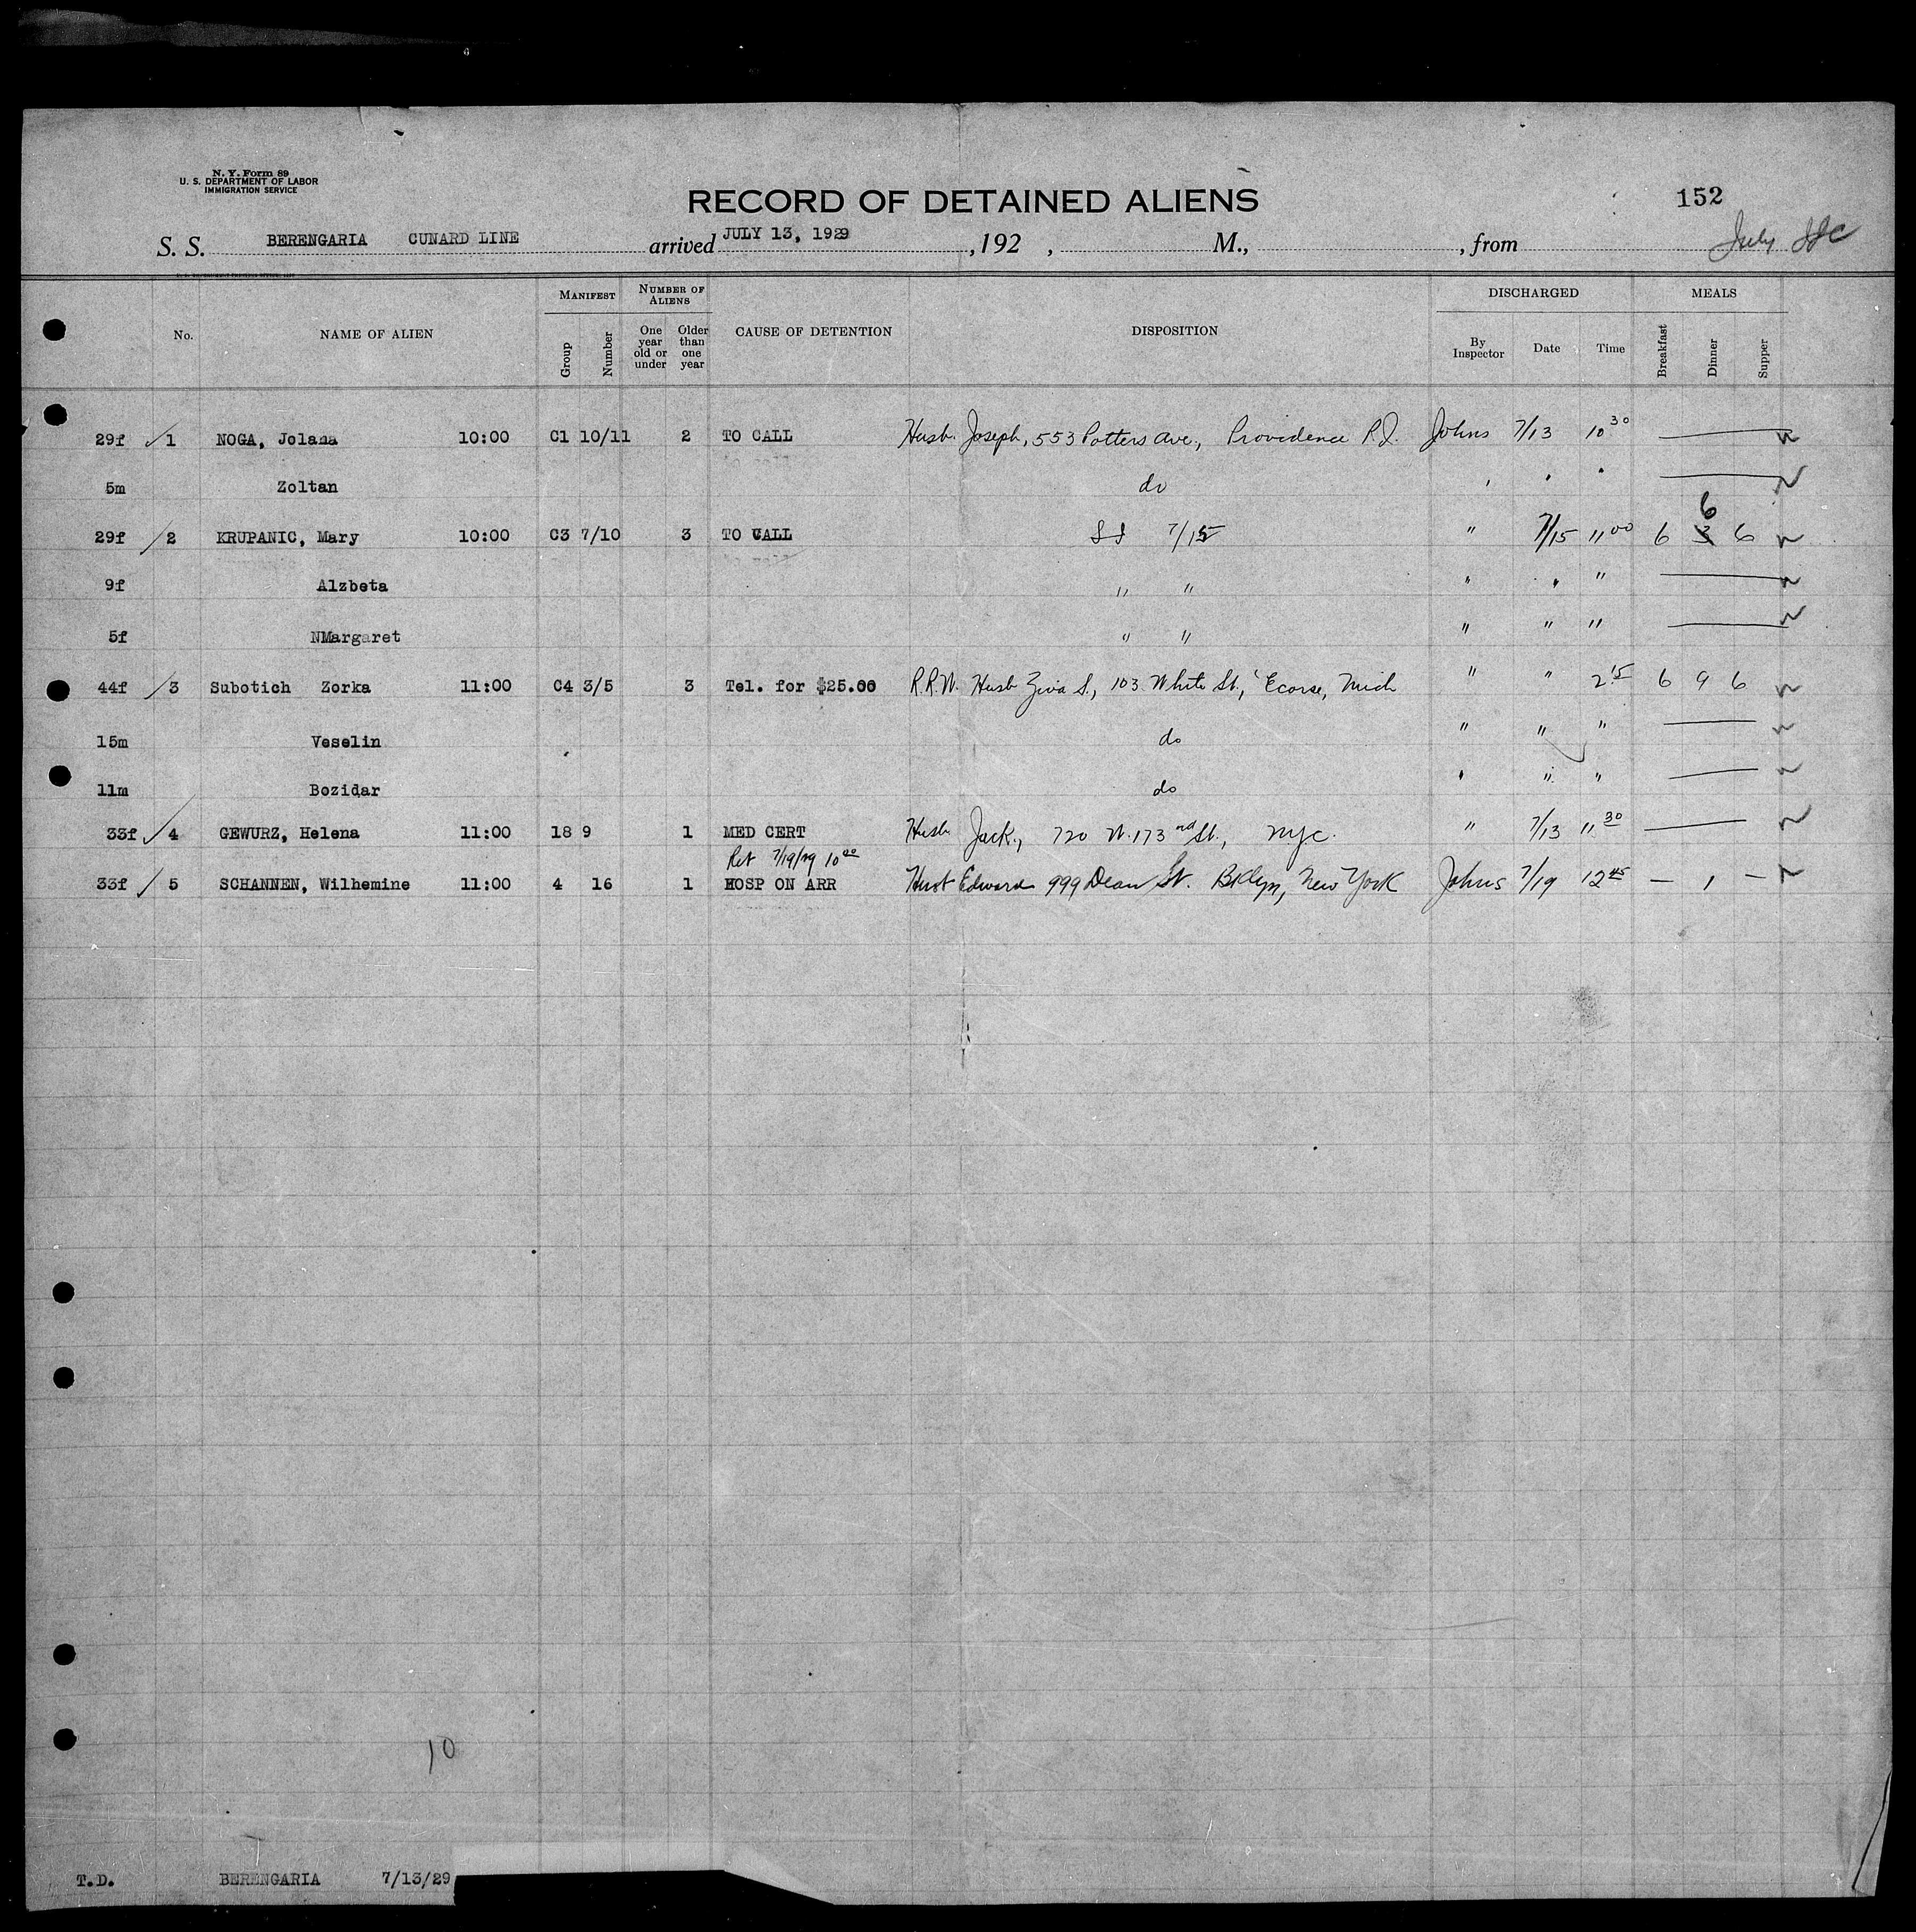 N. Y. Form 89
U. S. DEPARTMENT OF LABOR
IMMIGRATION SERVICE
RECORD OF DETAINED ALIENS
152
S. S. BERENGARIA CUNARD LINE arrived JULY 13, 1929 , 192 , M., , from July
No. NAME OF ALIEN MANIFEST Group Number NUMBER OF ALIENS One year old or under Older than one year CAUSE OF DETENTION DISPOSITION DISCHARGED By Inspector Date Time MEALS Breakfast Dinner Supper
29f 1 NOGA, Jolana 10:00 C1 10/11 2 TO CALL Husb. Joseph, 553 Potters Ave., Providence R.I. Johns 7/13 10 30
5m Zoltan do
6
29f 2 KRUPANIC, Mary 10:00 C3 7/10 3 TO CALL SI 7/15 " 7/15 11 00 6 3 6
9f Alzbeta " " " " "
5f Margaret " " " " "
44f 3 Subotich Zorka 11:00 C4 3/5 3 Tel. for $25.00 R.R.W. Husb Ziva S., 103 White St., Ecorse, Mich " " 2 15 6 9 6
15m Veselin do " " "
11m Bozidar do " " "
33f 4 GEWURZ, Helena 11:00 18 9 1 MED CERT Husb Jack, 720 W. 173rd St., NYC. " 7/13 11 30
Ret 7/19/29 10 00
33f 5 SCHANNEN, Wilhemine 11:00 4 16 1 HOSP ON ARR Husb Edward 999 Dean St. Bklyn, New York Johns 7/19 12 45 — 1 —
10
T.D. BERENGARIA 7/13/29